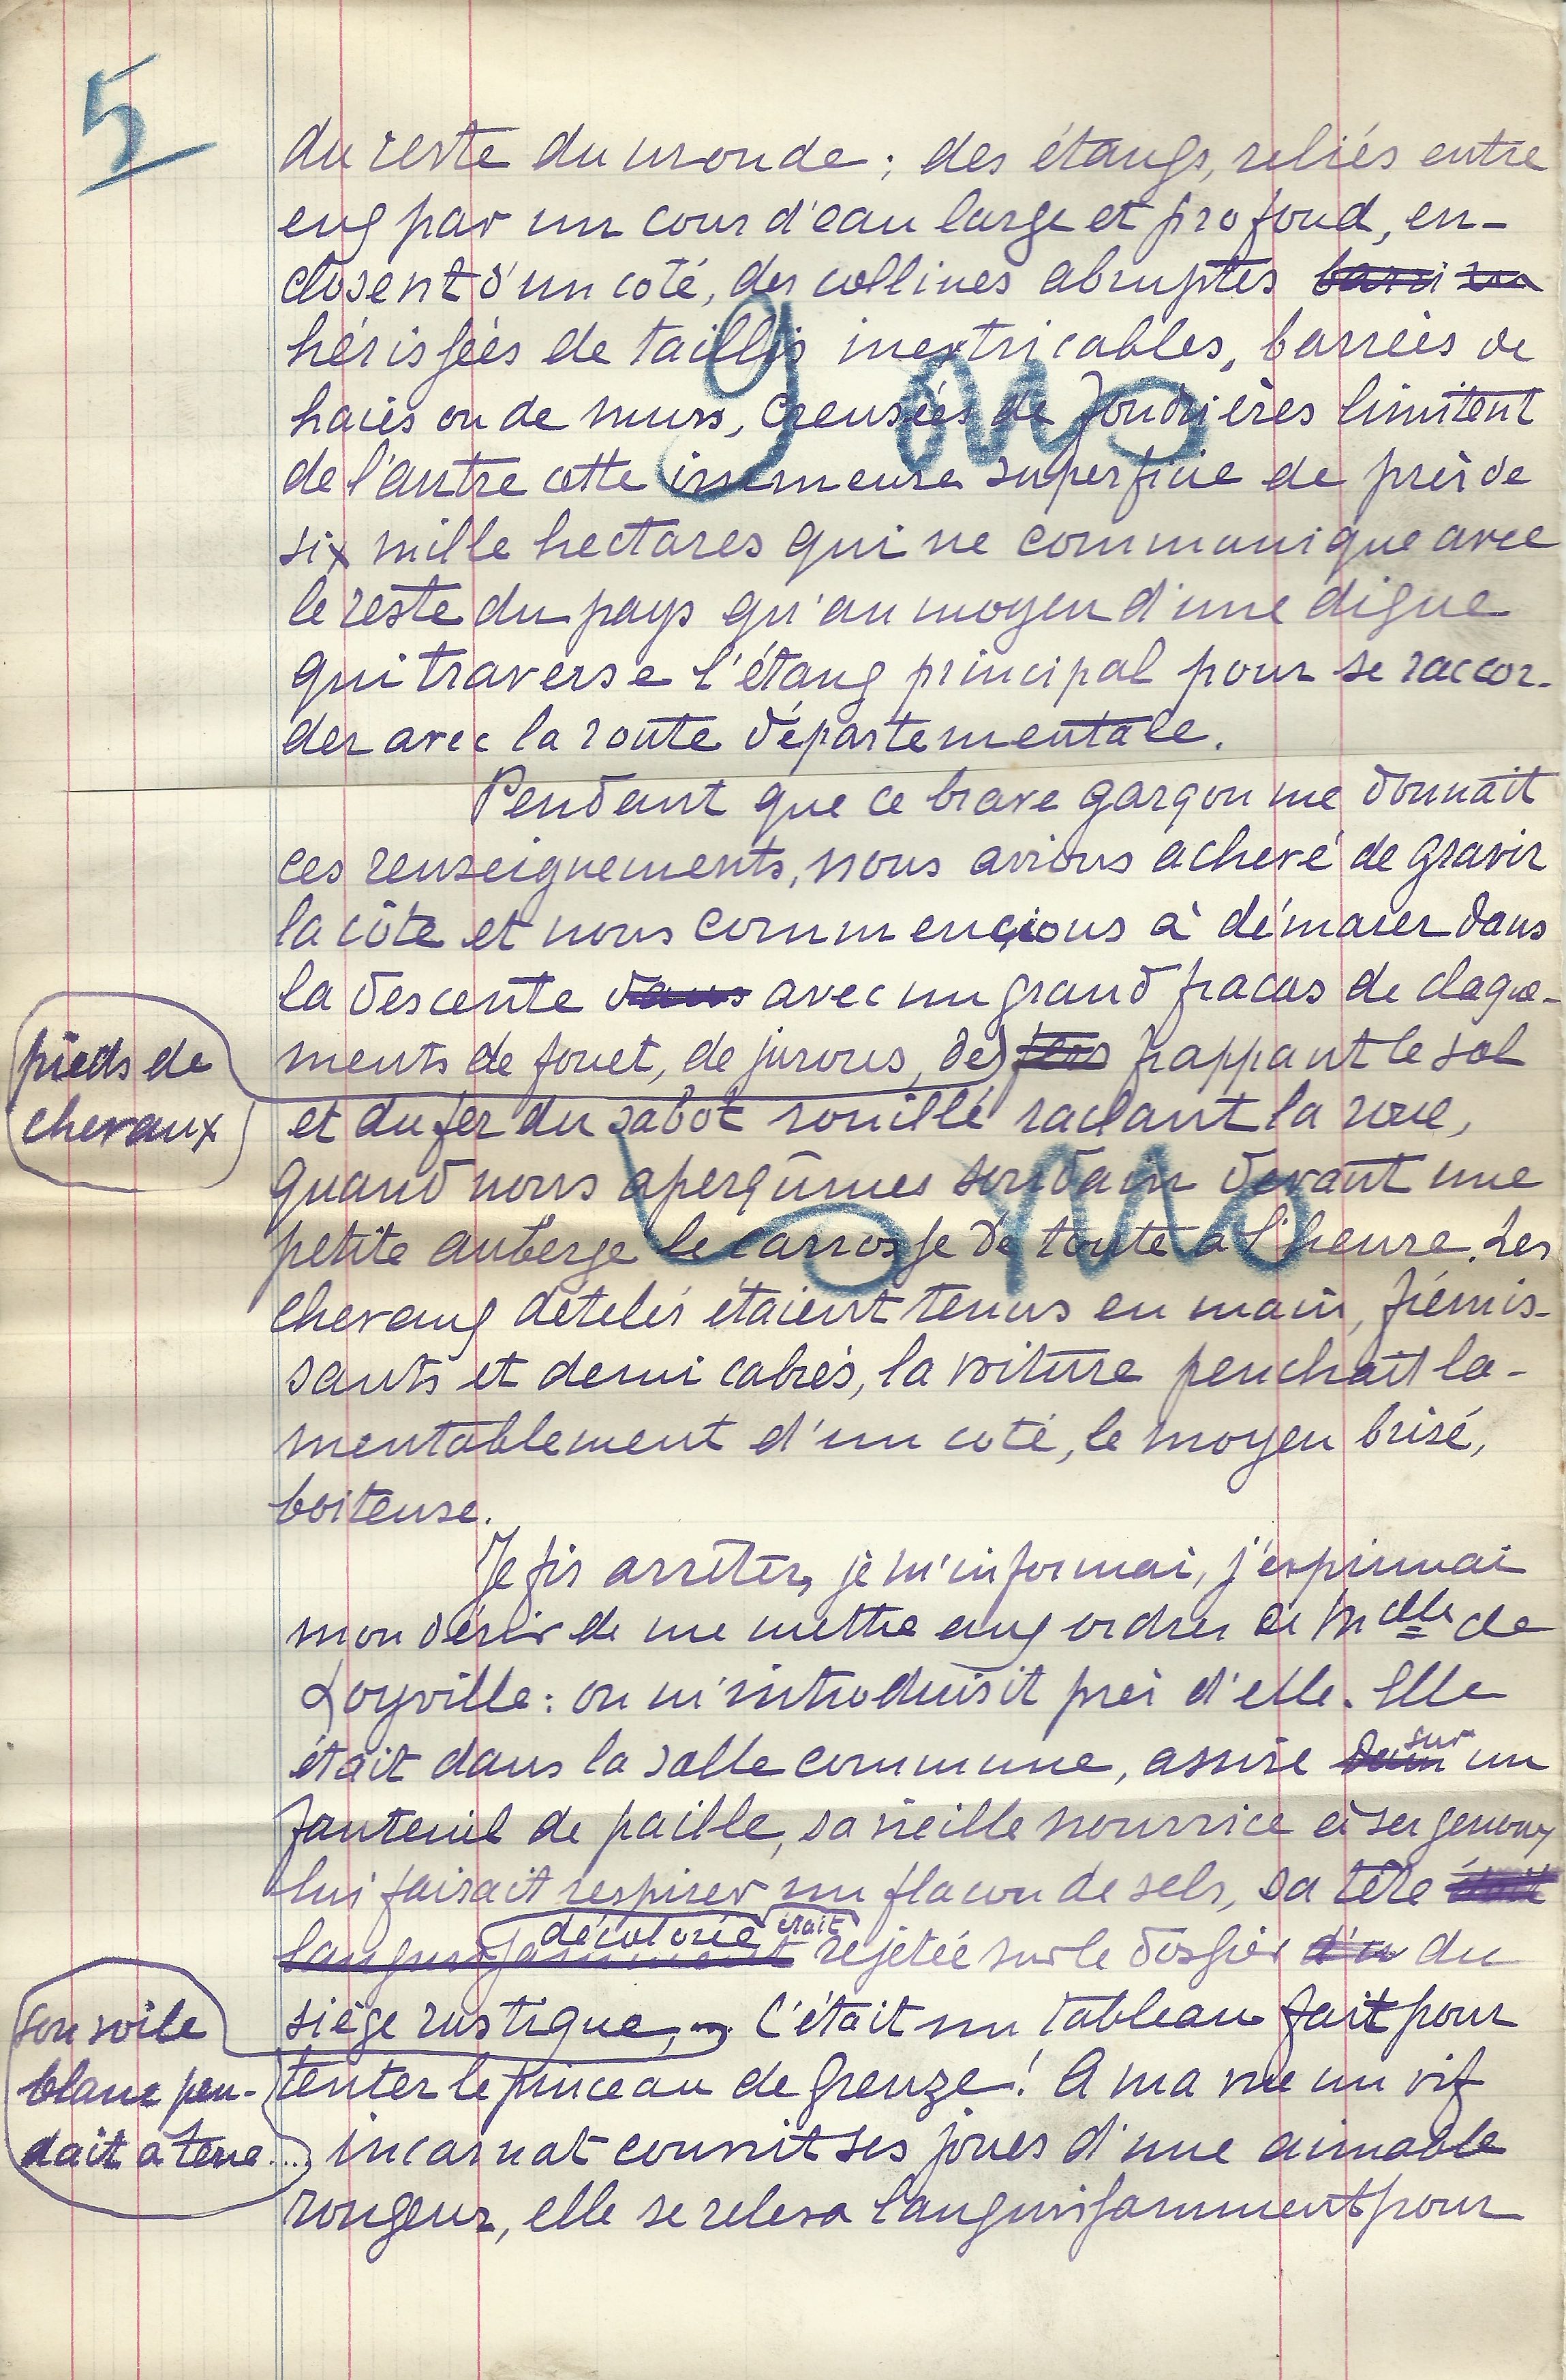 5
du reste du monde ; des étangs, reliés entre
eux par un cour d'eau large et profond, en-
closent d'un coté, des collines abruptes
hérissées de taillis inextricables, barrées de
haies ou de murs, creusées de fondrières limitent
de l'autre cette immense superficie de près de
six mille hectares qui ne communique avec
le reste du pays qu'au moyen d'une digue
qui traverse l'étang principal pour se raccor-
der avec la route départementale.
Pendant que ce brave garçon me donnait
ces renseignements, nous avions achevé de gravir
la côte et nous commencions à démarer dans
la descente dans avec un grand fracas de claque-
ments de fouet, de jurons, des fers frappant le sol
pieds de
chevaux
et du fer du sabot rouillé raclant la roue,
quand nous aperçûmes soudain devant une
petite auberge le carrosse de toute à l'heure. Les
chevaux dételés étaient tenus en main, frémis-
sants et demi cabrés, la voiture penchait la-
mentablement d'un coté, le moyeu brisé,
boiteuse.
Je fis arrêter, je m'informai, j'exprimai
mon désir de me mettre aux ordres de Mdelle de
Loyville : on m'introduisit près d'elle. Elle
était dans la salle commune, assise dans sur un
fauteuil de paille, sa vieille nourrice à ses genoux
lui faisait respirer un flacon de sels, sa tête était
languissamment décolorée était rejetée sur le dossier d'u du
siège rustique, C'était un tableau fait pour
son voile
blanc pen-
dait à terre...
tenter le pinceau de Greuze ! A ma vue un vif
incarnat couvrit ses joues d'une aimable
rougeur, elle se releva languissamment pour